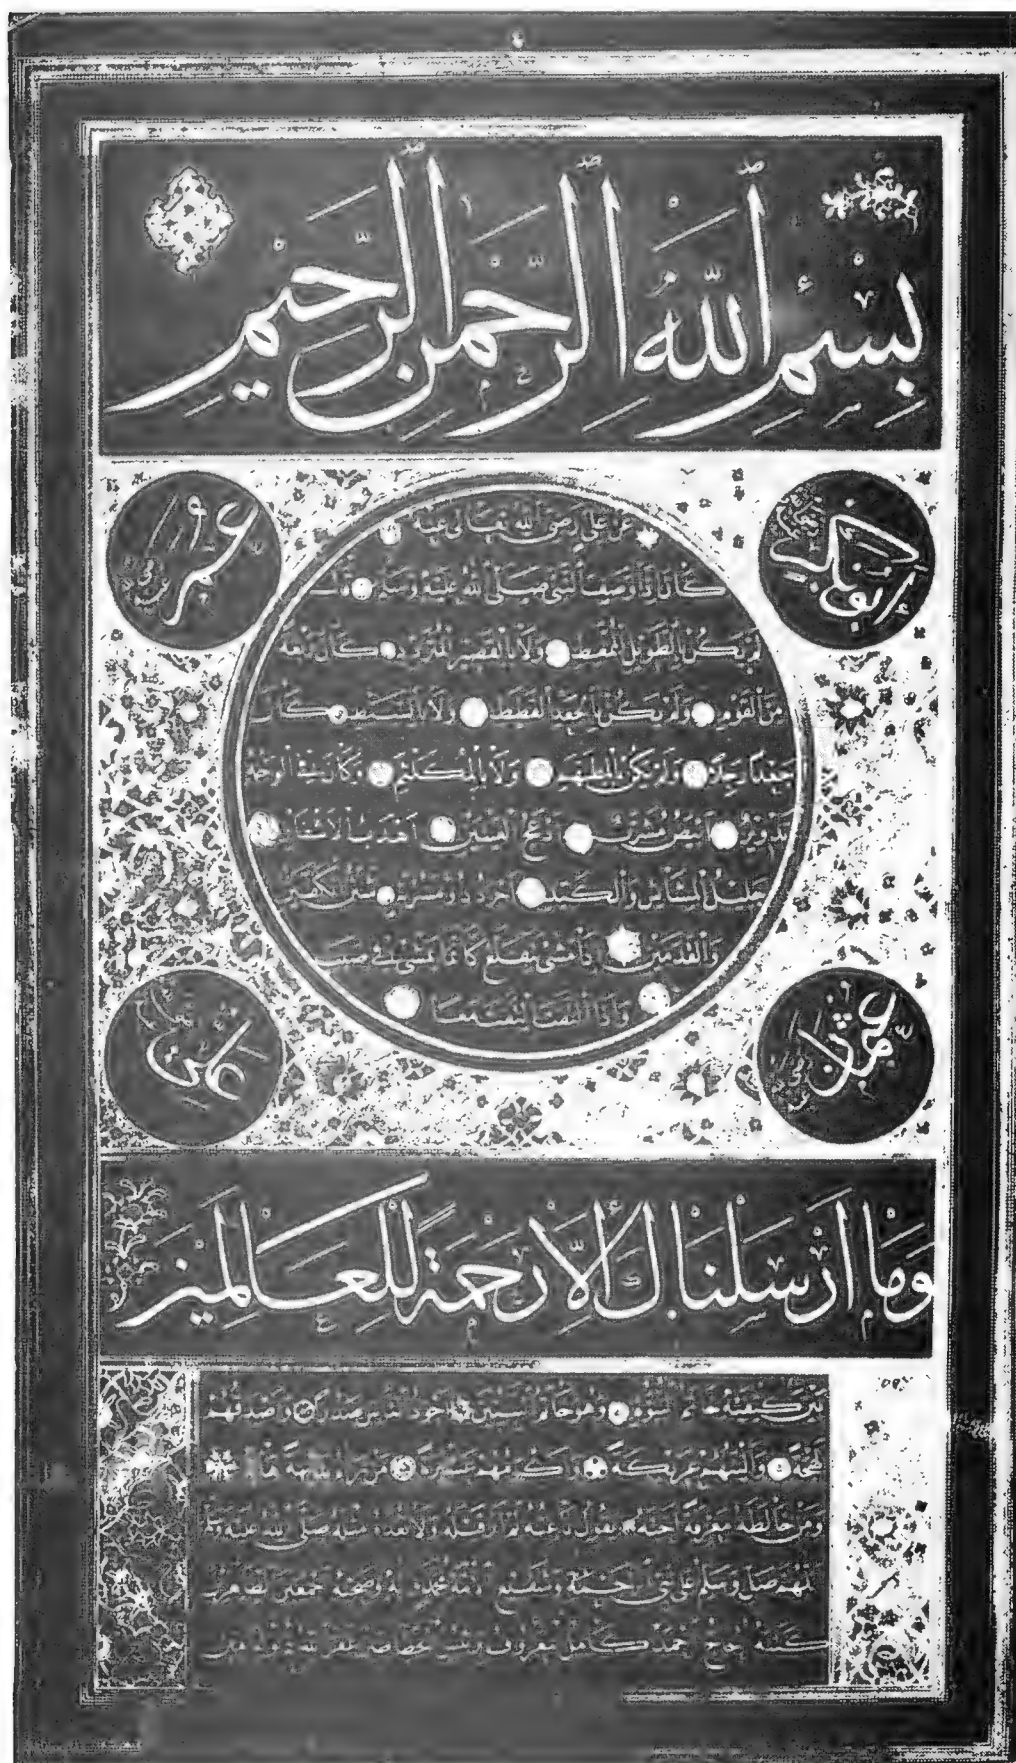 بِسْمِ اللّٰهِ الرَّحْمٰنِ الرَّحِيمِ
ابوبكر
عمر
عن علي رضي الله تعالى عنه
كان اذا وصف النبي صلى الله عليه وسلم قال
لم يكن بالطويل الممغط ولا بالقصير المتردد كان ربعة
من القوم ولم يكن بالجعد القطط ولا بالسبط كان
جعدا رجلا ولم يكن بالمطهم ولا بالمكلثم وكان في الوجه
تدوير ابيض مشرب ادعج العينين اهدب الاشفار
جليل المشاش والكتد اجرد ذو مسربة شثن الكفين
والقدمين اذا مشى يتقلع كانما يمشي في صبب
واذا التفت التفت معا
عثمان
علي
وَمَا أَرْسَلْنَاكَ إِلَّا رَحْمَةً لِلْعَالَمِينَ
بين كتفيه خاتم النبوة وهو خاتم النبيين اجود الناس صدرا واصدقهم
لهجة والينهم عريكة واكرمهم عشرة من رآه بديهة هابه
ومن خالطه معرفة احبه يقول ناعته لم ار قبله ولا بعده مثله صلى الله عليه وسلم
اللهم صل وسلم على نبي الرحمة وشفيع الامة محمد وآله وصحبه اجمعين
كتبه الحاج احمد كامل المعروف برئيس الخطاطين غفر الله ذنوبه